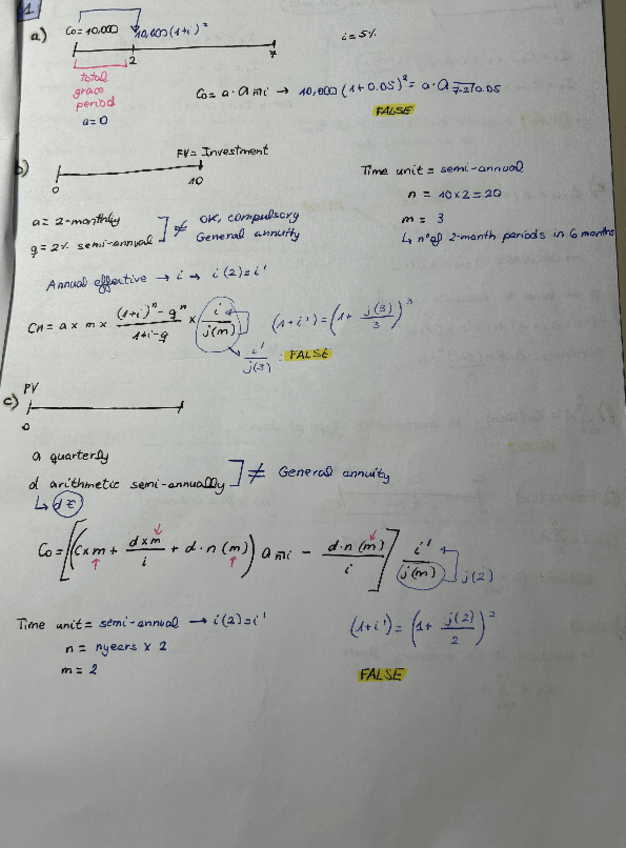 1
a) C₀=10,000 10,000(1+i)² i=5%
2 7
total
grace
period
a=0
C₀= a · a n̅ i → 10,000 (1+0.05)² = a · a 7-2̅|0.05
FALSE
b) FV= Investment
0 10
Time unit = semi-annual
n = 10x2=20
m = 3
↳ nº of 2-month periods in 6 months
a= 2-monthly
q=2% semi-annual ] ≠ OK, compulsory
General annuity
Annual effective → i → i(2)=i'
Cn= a x m x ((1+i)ⁿ - qⁿ)/(1+i-q) x i/j(m) (1+i')=(1+ j(3)/3)³
i'/j(3) : FALSE
c) PV
0
a quarterly
d arithmetic semi-annually ] ≠ General annuity
↳ d €
C₀=[(C x m + (d x m)/i + d·n (m)) a n̅ i - (d·n (m))/i] i'/j(m) j(2)
Time unit= semi-annual → i(2)=i'
n = nyears x 2
m = 2
(1+i')= (1+ j(2)/2)²
FALSE